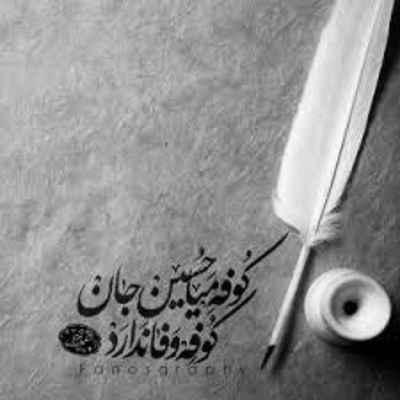 کوفه میا حسین جان
کوفه وفا ندارد
Fanosgraphy